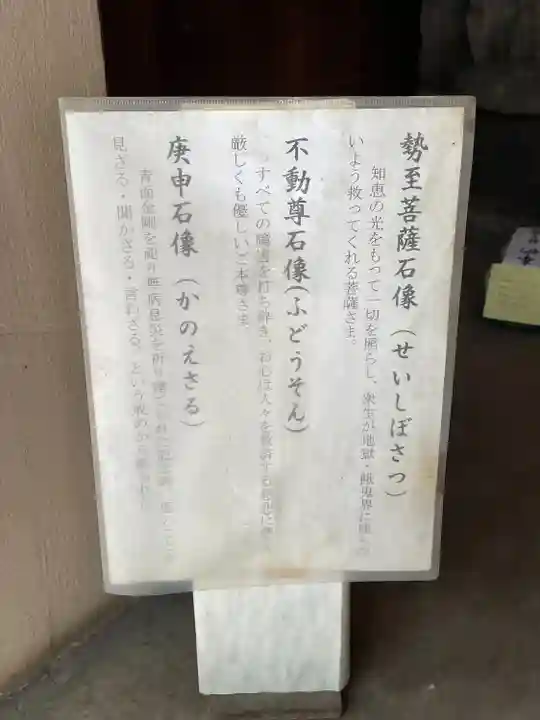 勢至菩薩石像（せいしぼさつ）
知恵の光をもって一切を照らし、衆生が地獄・餓鬼界に
いよう救ってくれる菩薩さま。
不動尊石像（ふどうそん）
すべての障害を打ち砕き、お心は人々を救済する
厳しくも優しいご本尊さま。
庚申石像（かのえさる）
青面金剛を祀り無病息災を祈り
見ざる・聞かざる・言わざる、という